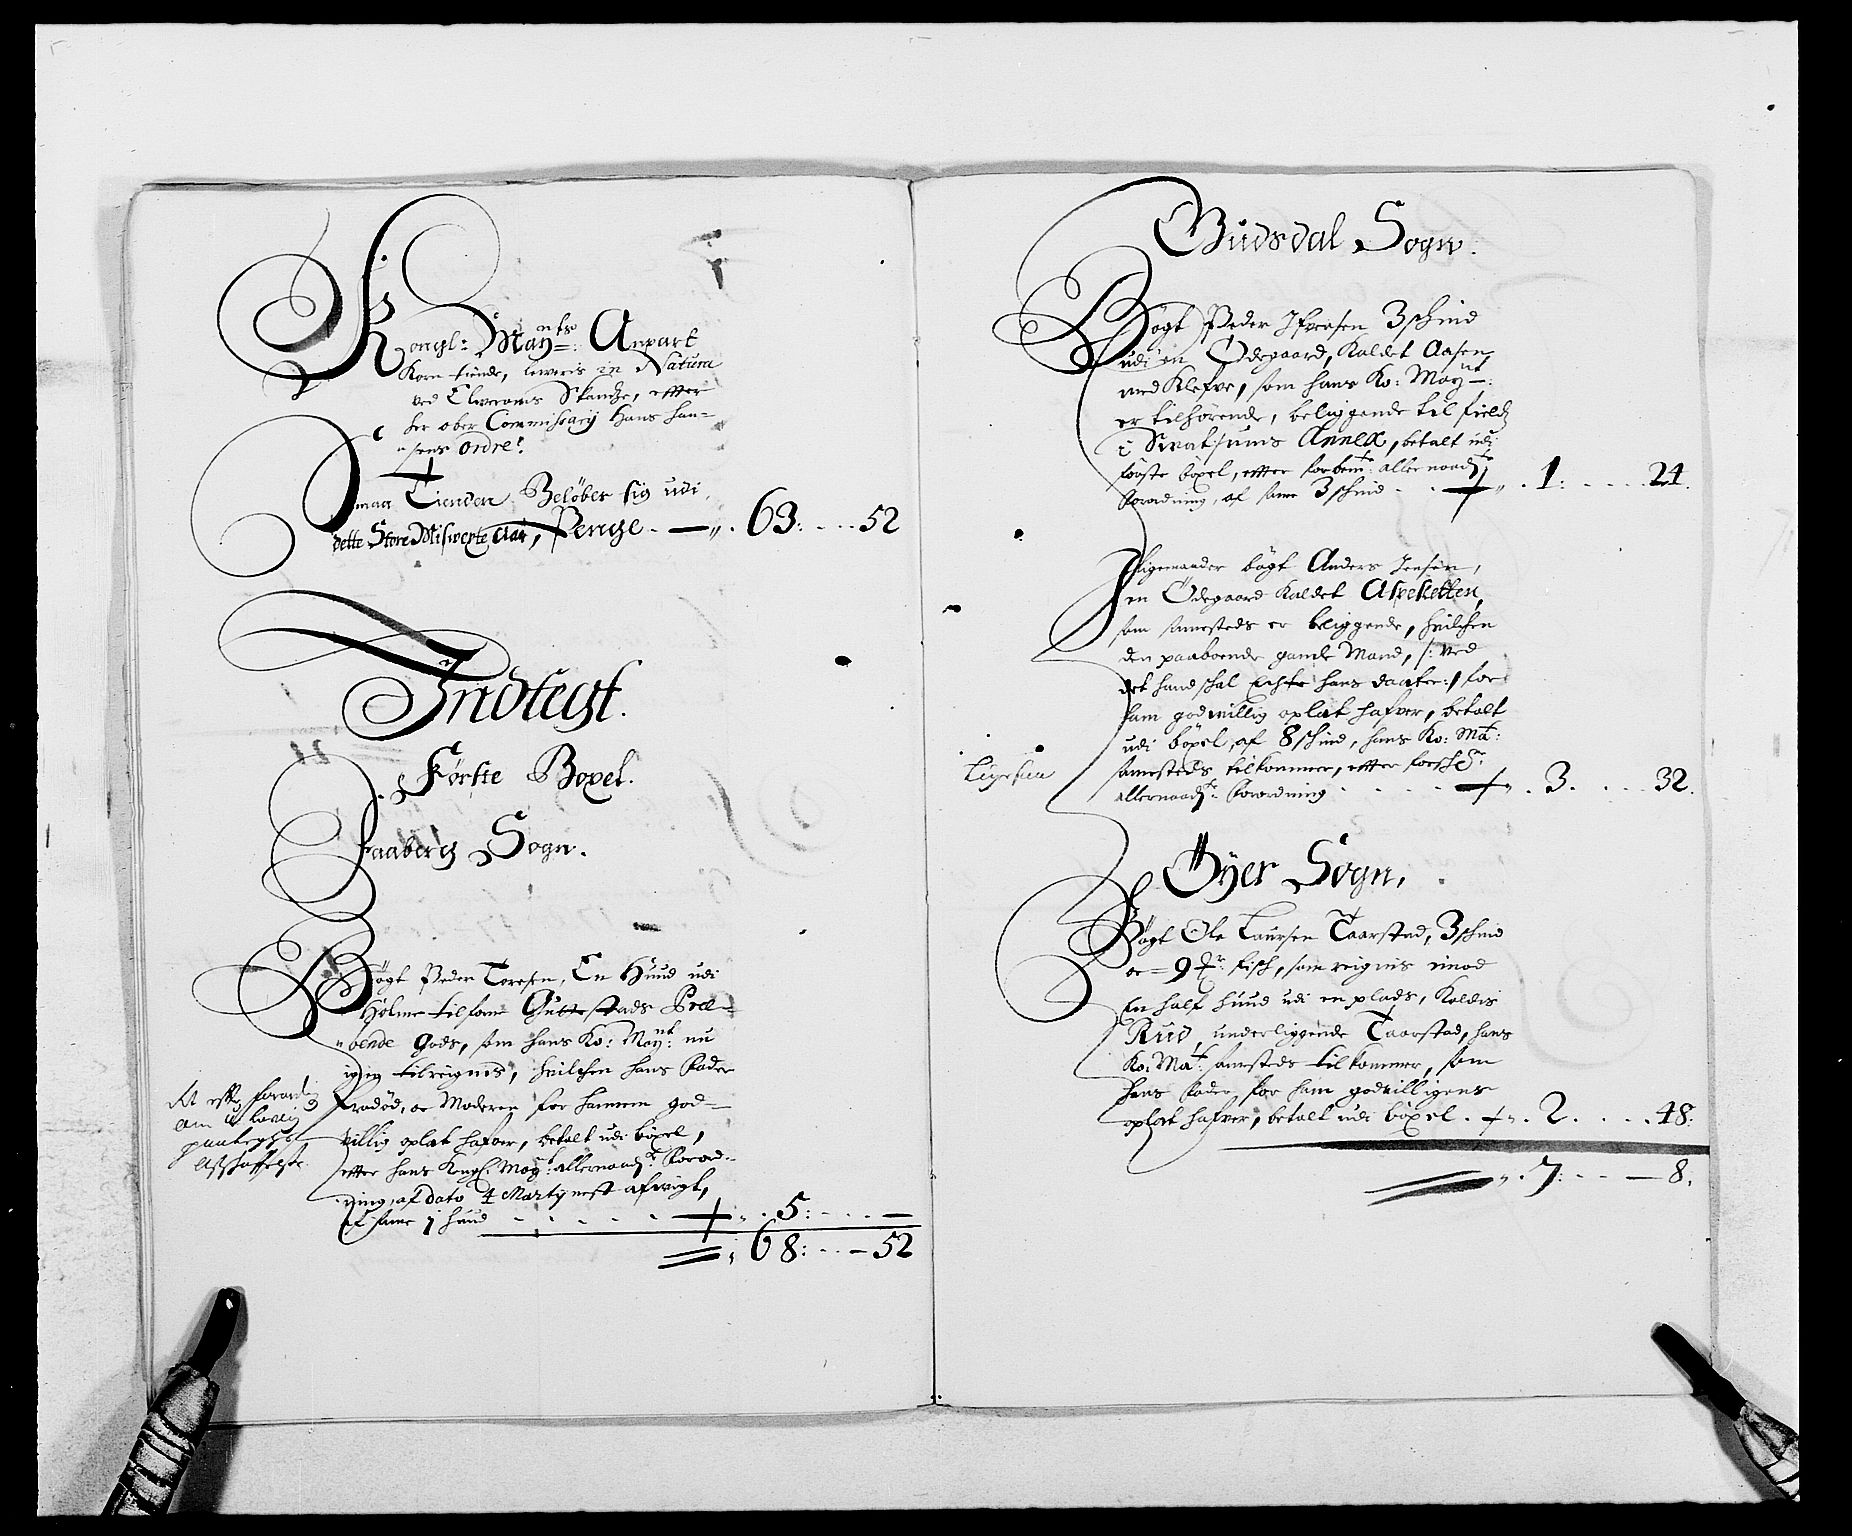 Kongl: May.nts Anpart
Korn tiende, leweris in Natura
ved Elweroms Skantze, effter
her ober Commissarij Hans Han=
sens Ordre.
Smaa Tienden Beløber sig udi
dette Store Miswexte Aar, Penge - — ,, . 63: - - - 52
Indtegt.
Første Boxel.
Faaberg Sogn.
Bögt Peder Toresen, En Huud udi
Holme tilforne Guttestads Præ=
bende Gods, som hans Ko: May.nt nu
igien tilreignes, hvilchen hans Fader
fradöd, oc Moderen for hannem god=
villig oplat hafver, betalt udi böxel,
effter hans Kongl. May.t allernaad.te Forord=
ning, af dato 4 Martij nest afvigt,
af forne 1 huud - - - - - . . 5: - - - —
68: - - - 52
Det effter
paateghs
Gudsdal Sogn.
Bögt Peder Ifversen 3 schind
udi en Ödegaard, Kaldet Aasen,
med Klefve, som hans Ko: May.nt:
er tilhörende, beliggende til fields
i Svatsums Annex, betalt udi
förste boxel, effter forbem.te allernaad.te
Forordning, af forne 3 schind - - . 1: - - - - 24.
Ligemaader bögt Anders Jensen,
en Ödegaard Kaldet Aspeketten,
som sammesteds er beliggende, hvilchen
den paaboende gamle Mand, /: ved
det hand schal Echte hans daater :/ for
ham godwillig oplat hafver, betalt
udi böxel, af 8 schind, hans Ko: Ma.t:
sammesteds tilkommer, effter
allernaad.te Forordning - - - - . 3. - - - - 32.
Ligesaa
Öyer Sogn,
Bögt Ole Laursen Taarstad, 3 schind
oc = 9 fisch, som reignis imod
En half huud udi en plads, Kaldis
Rud, underliggende Taarstad, hans
Ko: Ma.t: samesteds tilkommer, som
hans Fader for ham godvilligens
oplat hafver, betalt udi böxel . . 2. - - - . 48:
. 7: - - — 8.